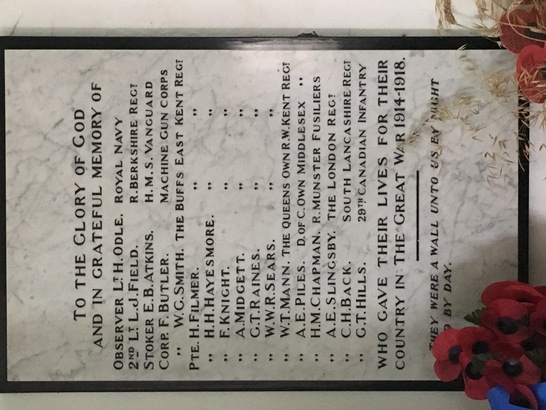 TO THE GLORY OF GOD
AND IN GRATEFUL MEMORY OF
OBSERVER LT H. ODLE. ROYAL NAVY
2ND LT L.J. FIELD. R. BERKSHIRE REGT
STOKER E.B. ATKINS. H.M.S. VANGUARD
CORP. F. BUTLER. MACHINE GUN CORPS
" W.G. SMITH. THE BUFFS EAST KENT REGT
PTE. H. FILMER. " "
" H.H. HAYESMORE. " "
" F. KNIGHT. " "
" A. MIDGETT. " "
" G.T. RAINES. " "
" W.W.R. SEARS. " "
" W.T. MANN. THE QUEENS OWN R.W. KENT REGT
" A.E. PILES. D. OF C. OWN MIDDLESEX "
" H.M. CHAPMAN. R. MUNSTER FUSILIERS
" A.E. SLINGSBY. THE LONDON REGT
" C.H. BACK. SOUTH LANCASHIRE REGT
" G.T. HILLS. 29TH CANADIAN INFANTRY
WHO GAVE THEIR LIVES FOR THEIR
COUNTRY IN THE GREAT WAR 1914-1918.
THEY WERE A WALL UNTO US BY NIGHT
BY DAY.